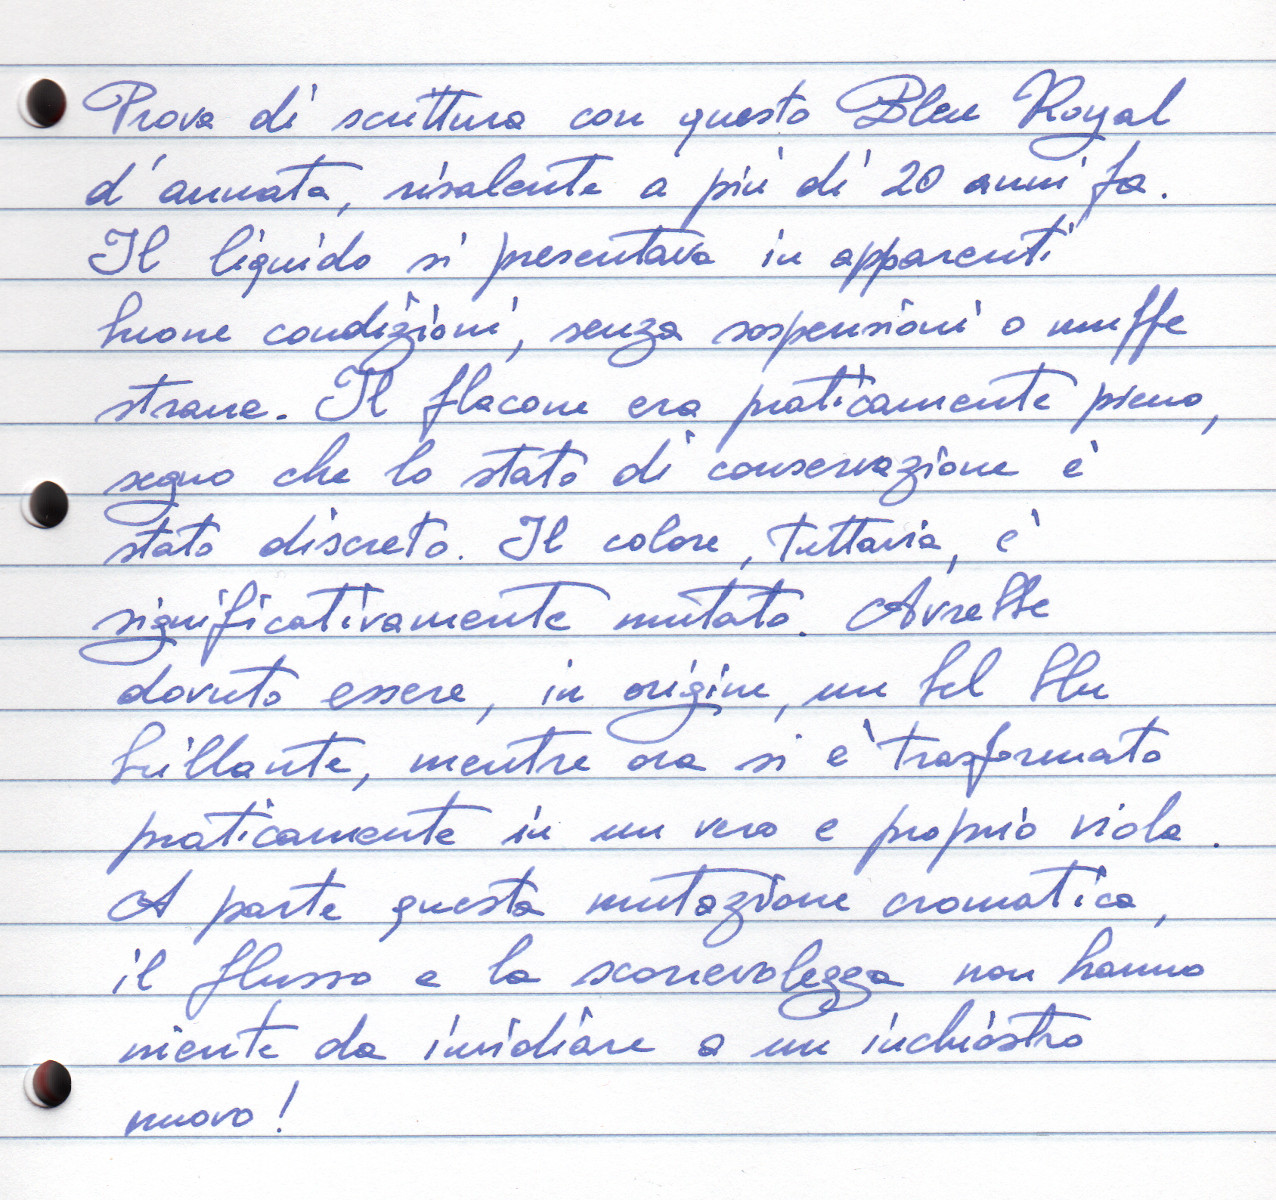 Prova di scrittura con questo Bleu Royal
d'annata, risalente a più di 20 anni fa.
Il liquido si presentava in apparenti
buone condizioni, senza sospensioni o muffe
strane. Il flacone era praticamente pieno,
segno che lo stato di conservazione è
stato discreto. Il colore, tuttavia, è
significativamente mutato. Avrebbe
dovuto essere, in origine, un bel blu
brillante, mentre ora si è trasformato
praticamente in un vero e proprio viola.
A parte questa mutazione cromatica,
il flusso e la scorrevolezza non hanno
niente da invidiare a un inchiostro
nuovo!